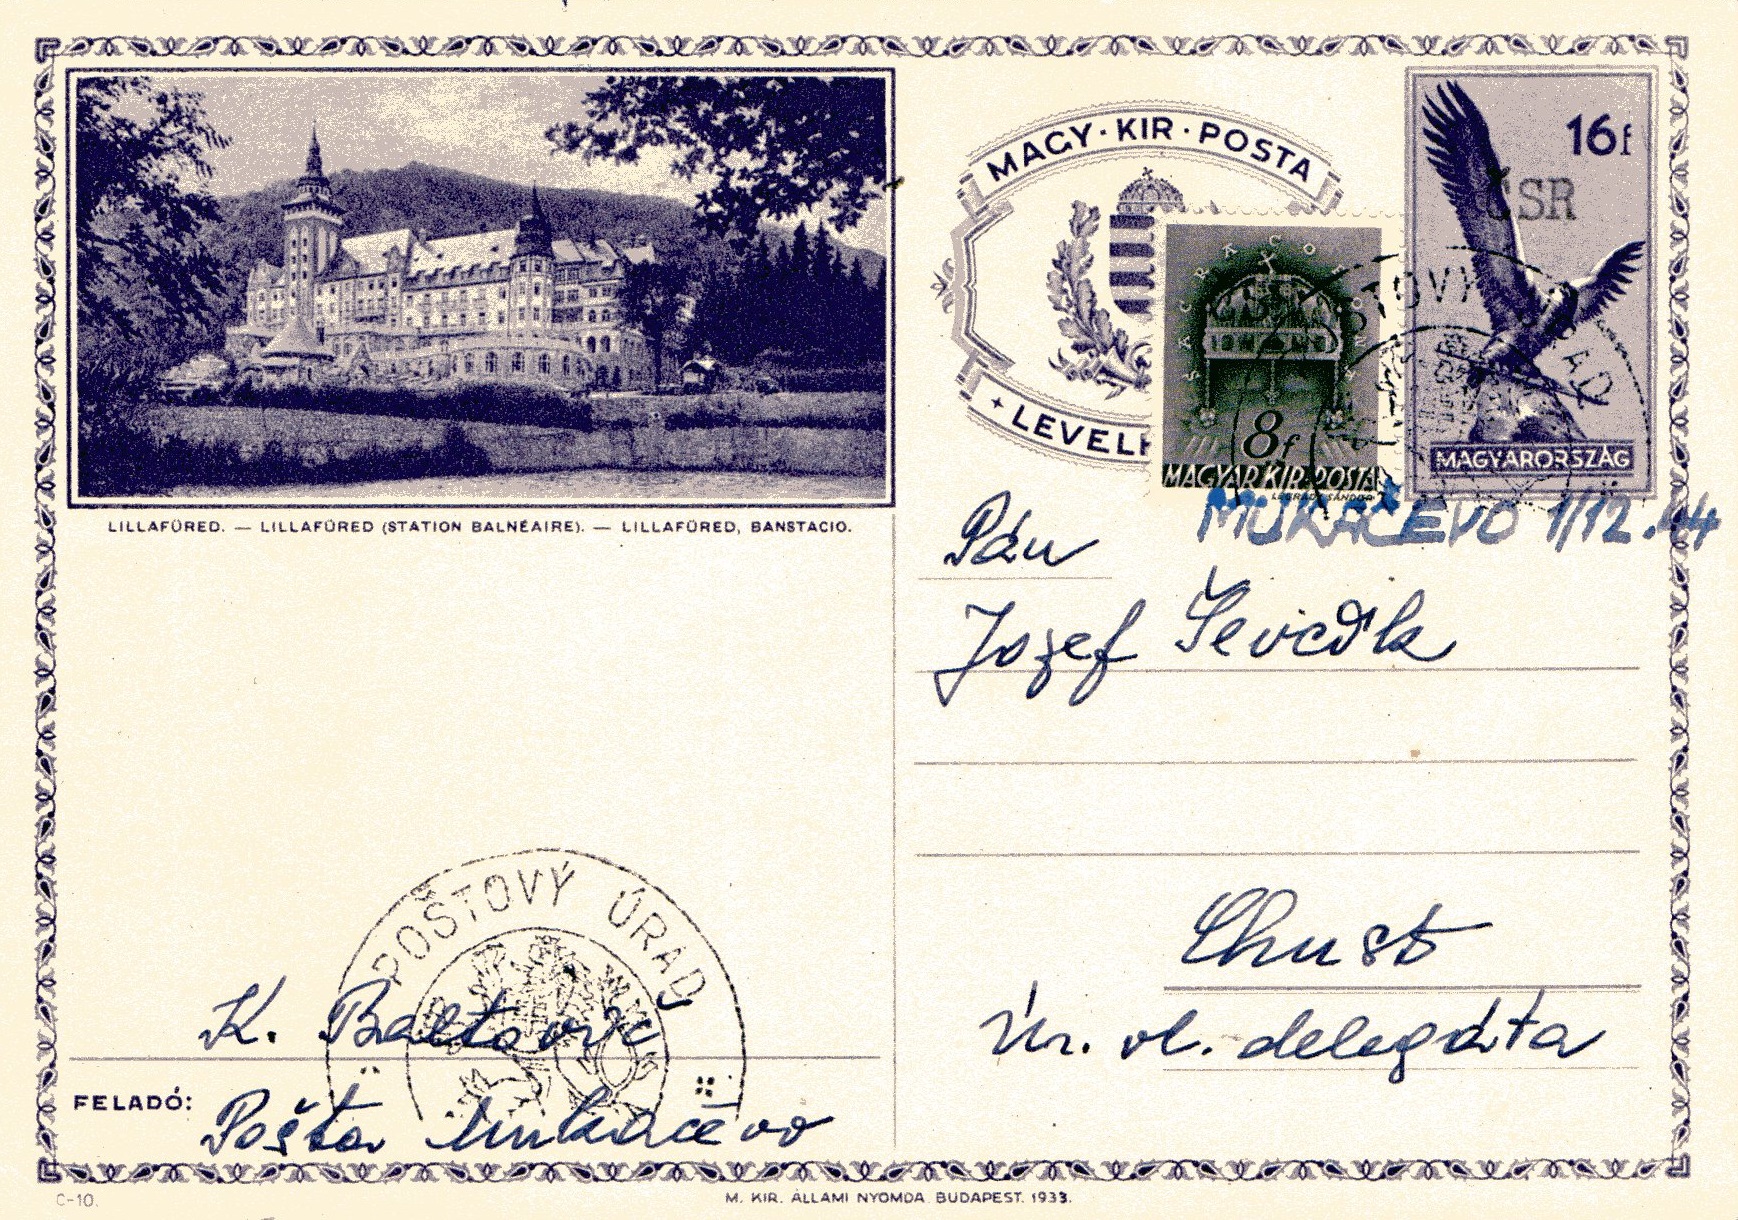 MAGY · KIR · POSTA
16f
ČSR
SACRA CORONA
8f
MAGYAR KIR. POSTA
LEGRÁDY SÁNDOR
MAGYARORSZÁG
POŠTOVÝ ÚRAD
MUKAČEVO 1/12.44
LILLAFÜRED. — LILLAFÜRED (STATION BALNÉAIRE). — LILLAFÜRED, BANSTACIO.
Pán
Jozef
Chust
Úr. vl. delegáta
POŠTOVÝ ÚRAD
K.
FELADÓ: Pošta Mukačevo
C-10.
M. KIR. ÁLLAMI NYOMDA. BUDAPEST. 1933.